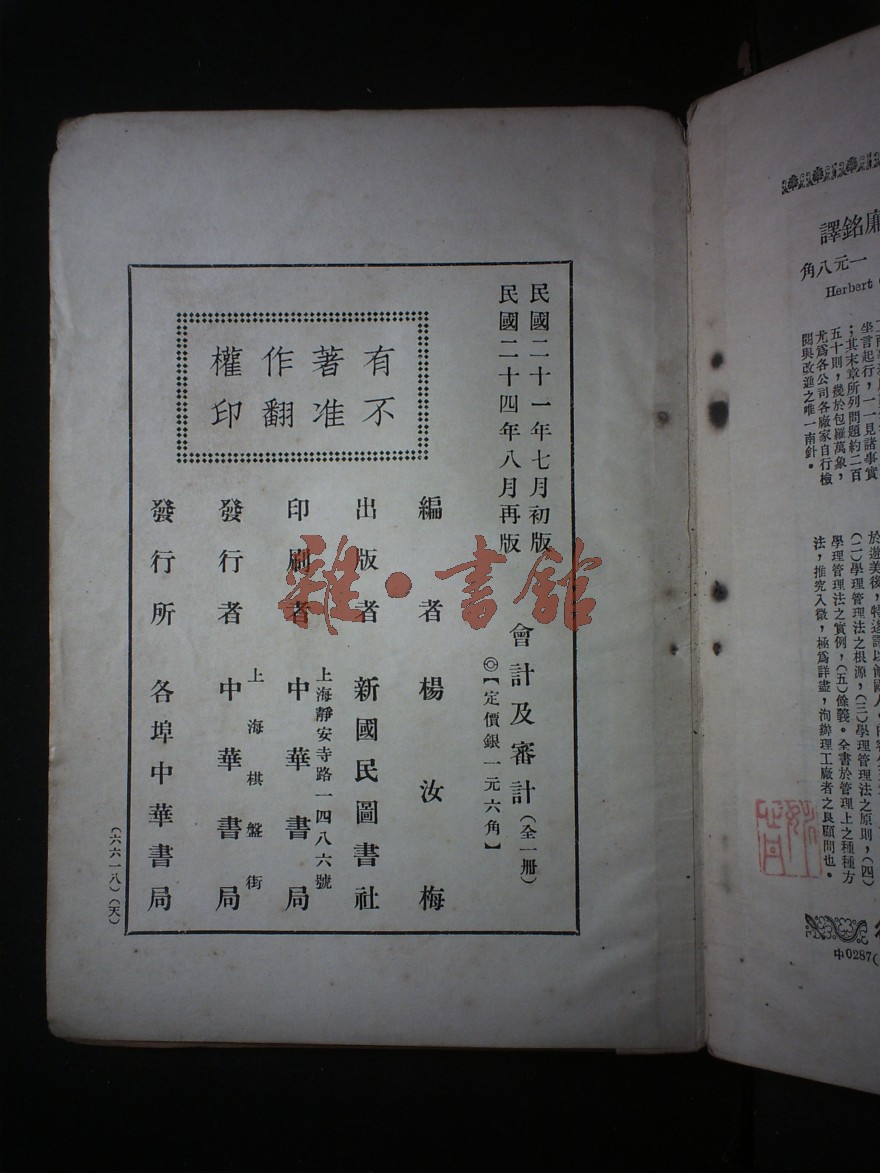 民國二十一年七月初版
民國二十四年八月再版
會計及審計（全一册）
◎【定價銀一元六角】
有不
著准
作翻
權印
編者 楊汝梅
出版者 新國民圖書社
上海靜安寺路一四八六號
印刷者 中華書局
上海棋盤街
發行者 中華書局
發行所 各埠中華書局
（六六一八）（天）
雜·書館
銘譯
一元八角
Herbert
坐言起行，一一見諸事實
；其末章所列問題約二百
五十則，幾於包羅萬象，
尤爲各公司各廠家自行檢
閱與改進之唯一南針。
（二）學理管理法之根源，（三）學理管理法之原則，（四）
學理管理法之實例，（五）餘義。全書於管理上之種種方
法，推究入微，極爲詳盡，洵辦理工廠者之良顧問也。
中0287(